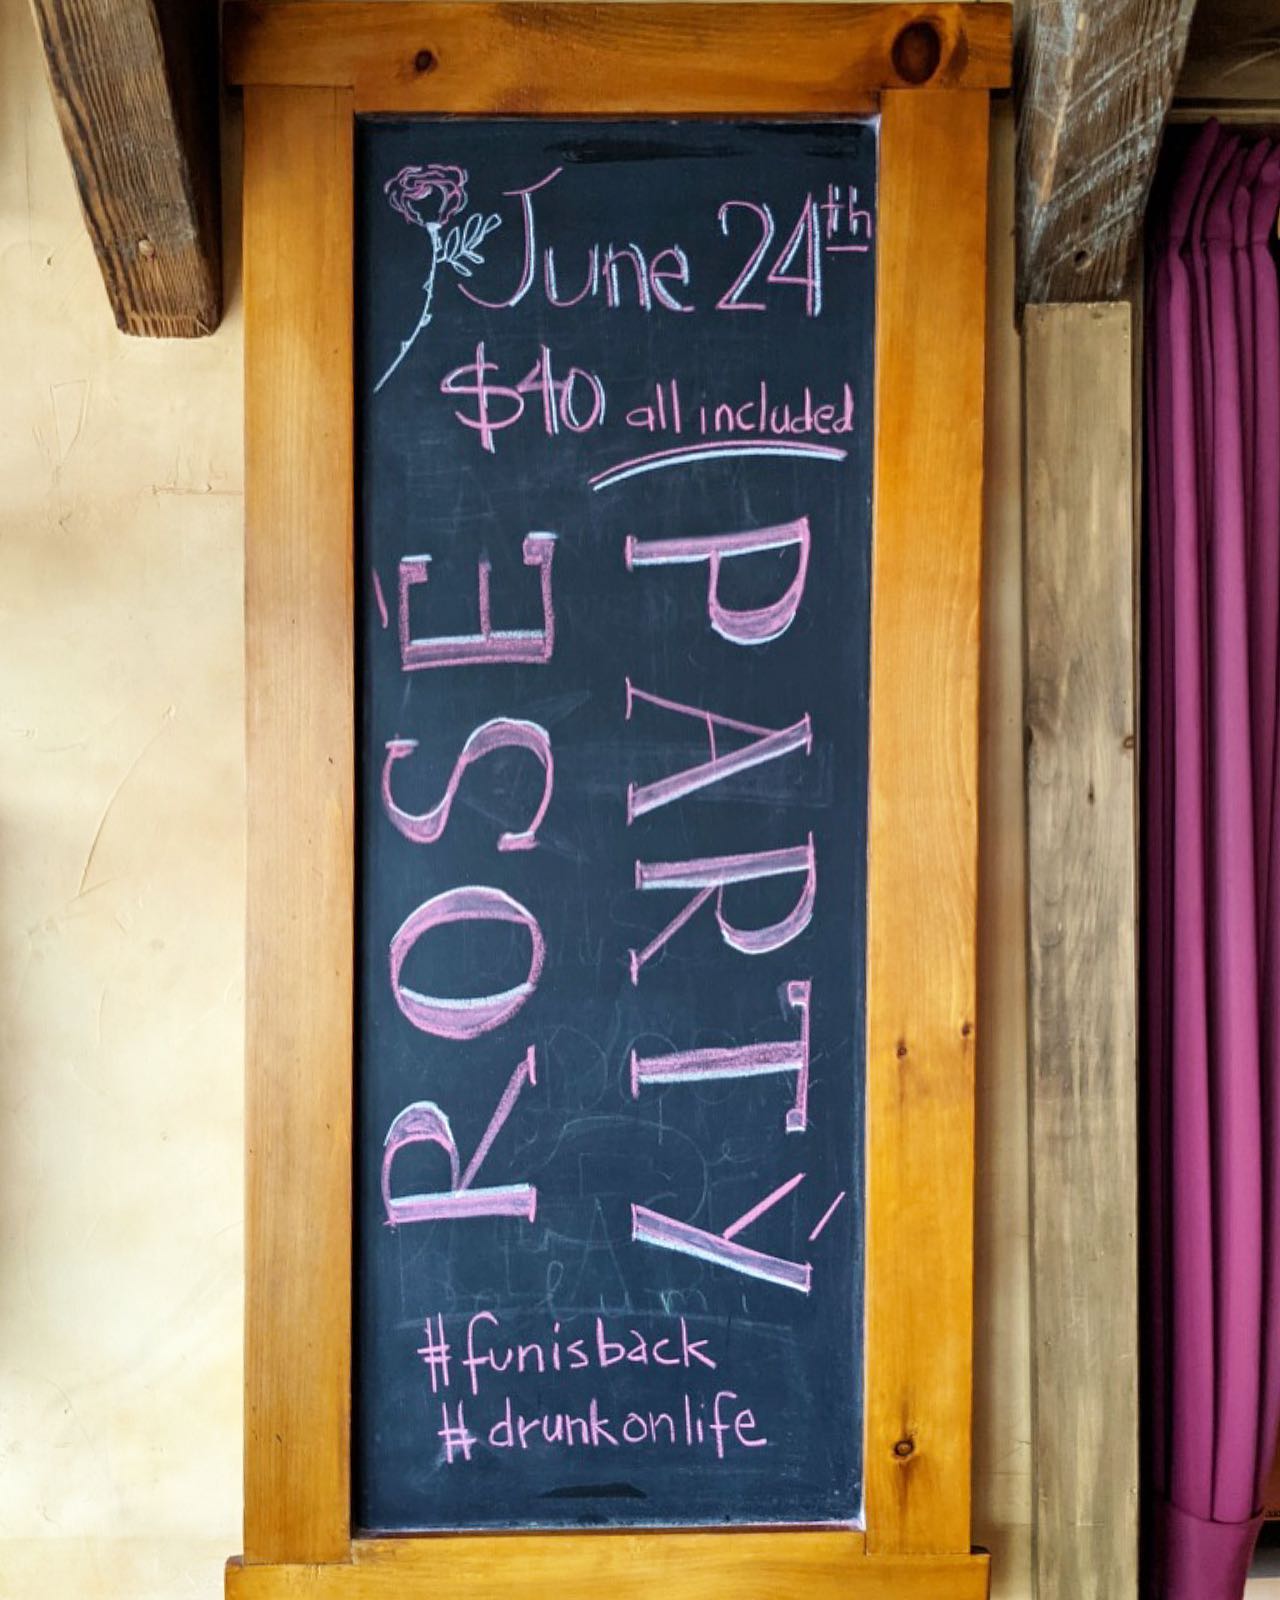 June 24th
$40 all included
ROSÉ
PARTY
#funisback
#drunkonlife